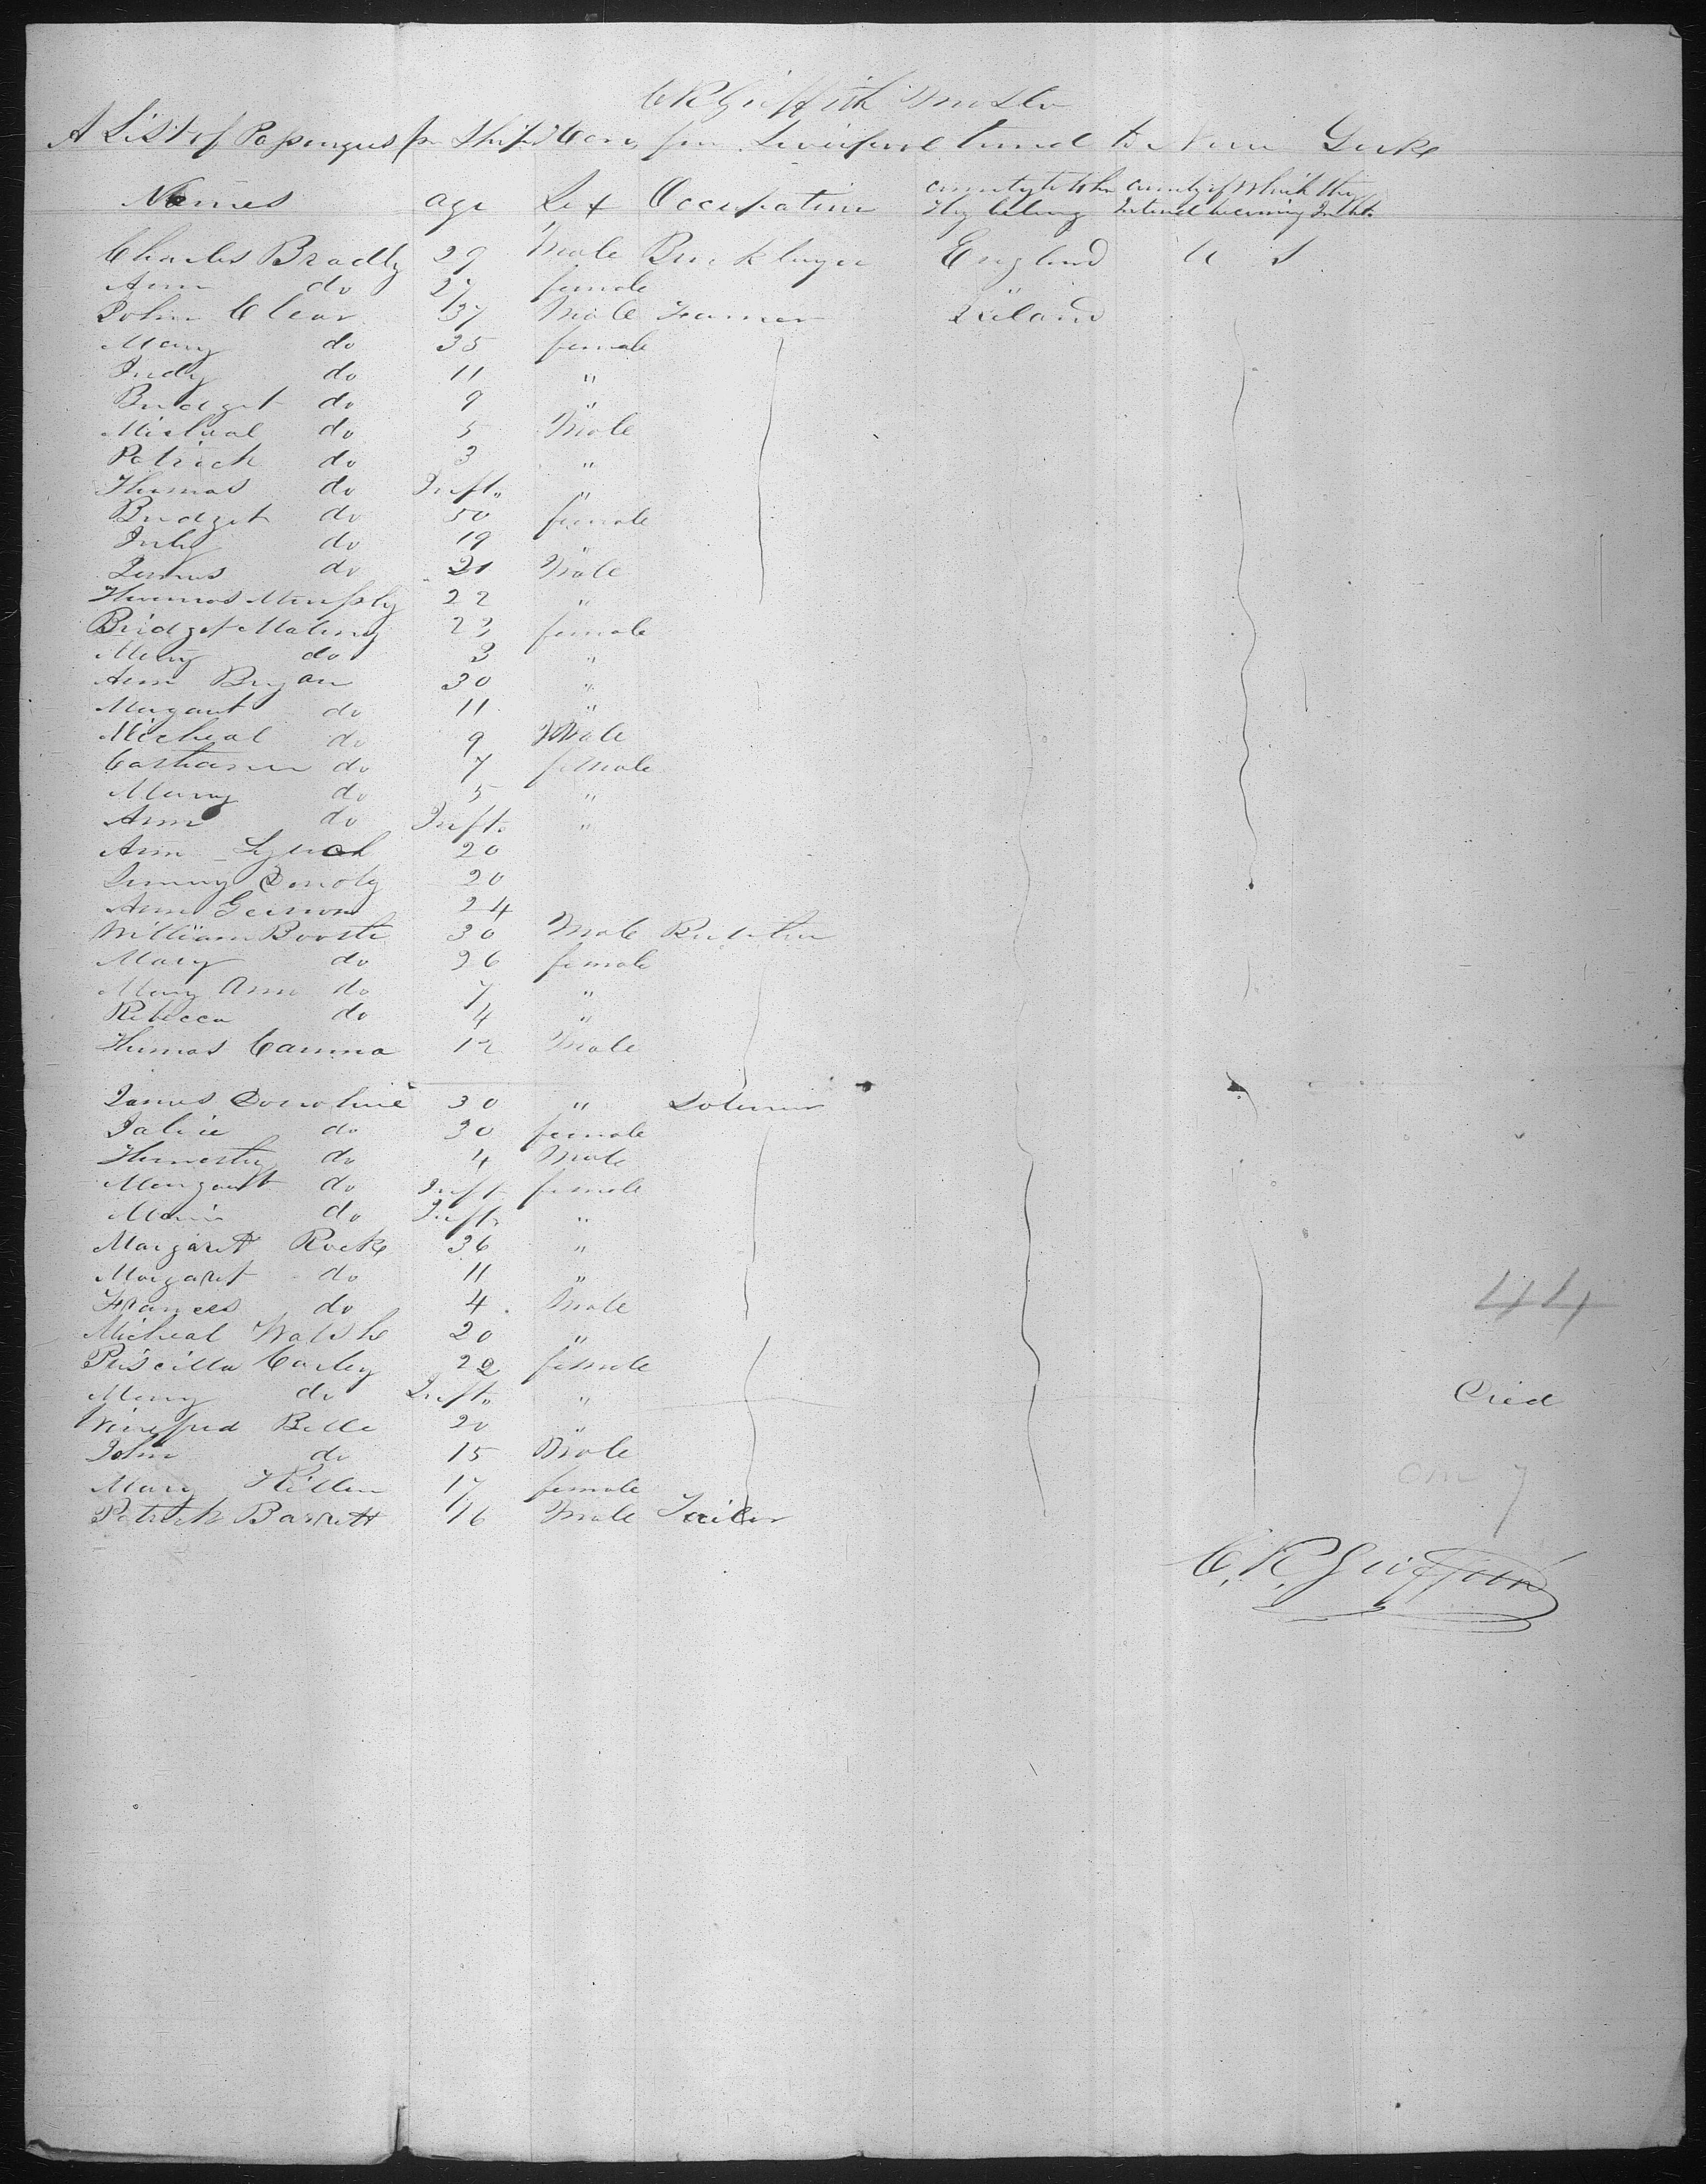 C R Griffith Master
A List of Passengers pr Ship from Liverpool bound to New Yorke
Names age Sex Occupation County to Which They belong County of Which they Intend becoming Inhts
Charles Bradly 29 Male Bricklayer England U S
Ann do 27 female "
John Clear 37 Male Farmer Ireland
Mary do 35 female
Judy do 11 "
Bridget do 9 "
Micheal do 5 Male
Patrick do 3 "
Thomas do Inft "
Bridget do 50 female
July do 19 "
James do 21 Male
Thomas Murphy 22 "
Bridget Malony 23 female
Mary do 3 "
Ann Bryan 30 "
Margaret do 11 "
Micheal do 9 Male
Catharin do 7 female
Mary do 5 "
Ann do Inft "
Ann Lynch 20
Donoly 20
Ann 24
William Booste 30 Male
Mary do 26 female
Mary Ann do 7 "
Rebecca do 4 "
Thomas Canna 12 Male
James Donohue 30 " Laborer
do 30 female
do 4 Male
Margaret do Inft female
Maria do Inft "
Margaret Rocke 36 "
Margaret do 11 "
Frances do 4 Male
44
Micheal Walsh 20 "
Priscilla Carley 22 female
Mary do Inft " Died
Winefred Belle 20 "
John do 15 Male
Mary Killen 17 female
Patrick Barrett 16 Male Tailor
C. R. Griffith